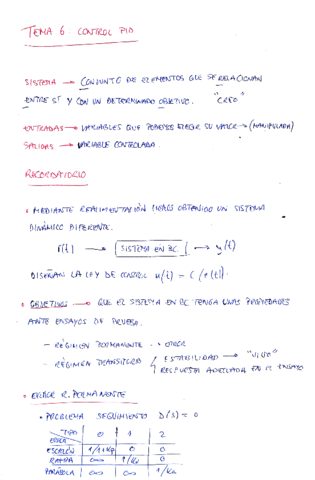 TEMA 6 CONTROL PID
SISTEMA → CONJUNTO DE ELEMENTOS QUE SE RELACIONAN
ENTRE SÍ Y CON UN DETERMINADO OBJETIVO. "CREO"
ENTRADAS → VARIABLES QUE PODEMOS ELEGIR SU VALOR → (MANIPULADA)
SALIDAS → VARIABLE CONTROLADA
RECORDATORIO
• MEDIANTE REALIMENTACIÓN HEMOS OBTENIDO UN SISTEMA
DINÁMICO DIFERENTE.
r(t) → SISTEMA EN BC. → y(t)
DISEÑAR LA LEY DE CONTROL u(t) = C(r(t)).
• OBJETIVOS → QUE EL SISTEMA EN BC TENGA UNAS PROPIEDADES
ANTE ENSAYOS DE PRUEBA.
- RÉGIMEN PERMANENTE → ERROR
- RÉGIMEN TRANSITORIO ESTABILIDAD → "VIVO"
RESPUESTA ADECUADA EN EL ENSAYO
• ERROR R. PERMANENTE
• PROBLEMA SEGUIMIENTO D(s) = 0
TIPO 0 1 2
ERROR
ESCALÓN 1/1+Kp 0 0
RAMPA ∞ 1/Kv 0
PARÁBOLA ∞ ∞ 1/Ka